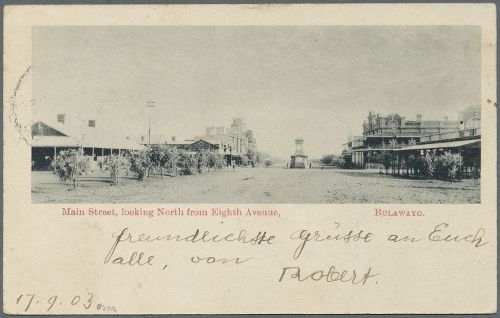 Main Street, looking North from Eighth Avenue, BULAWAYO.
freundlichste Grüsse an Euch
alle, von
Robert.
17.9.03